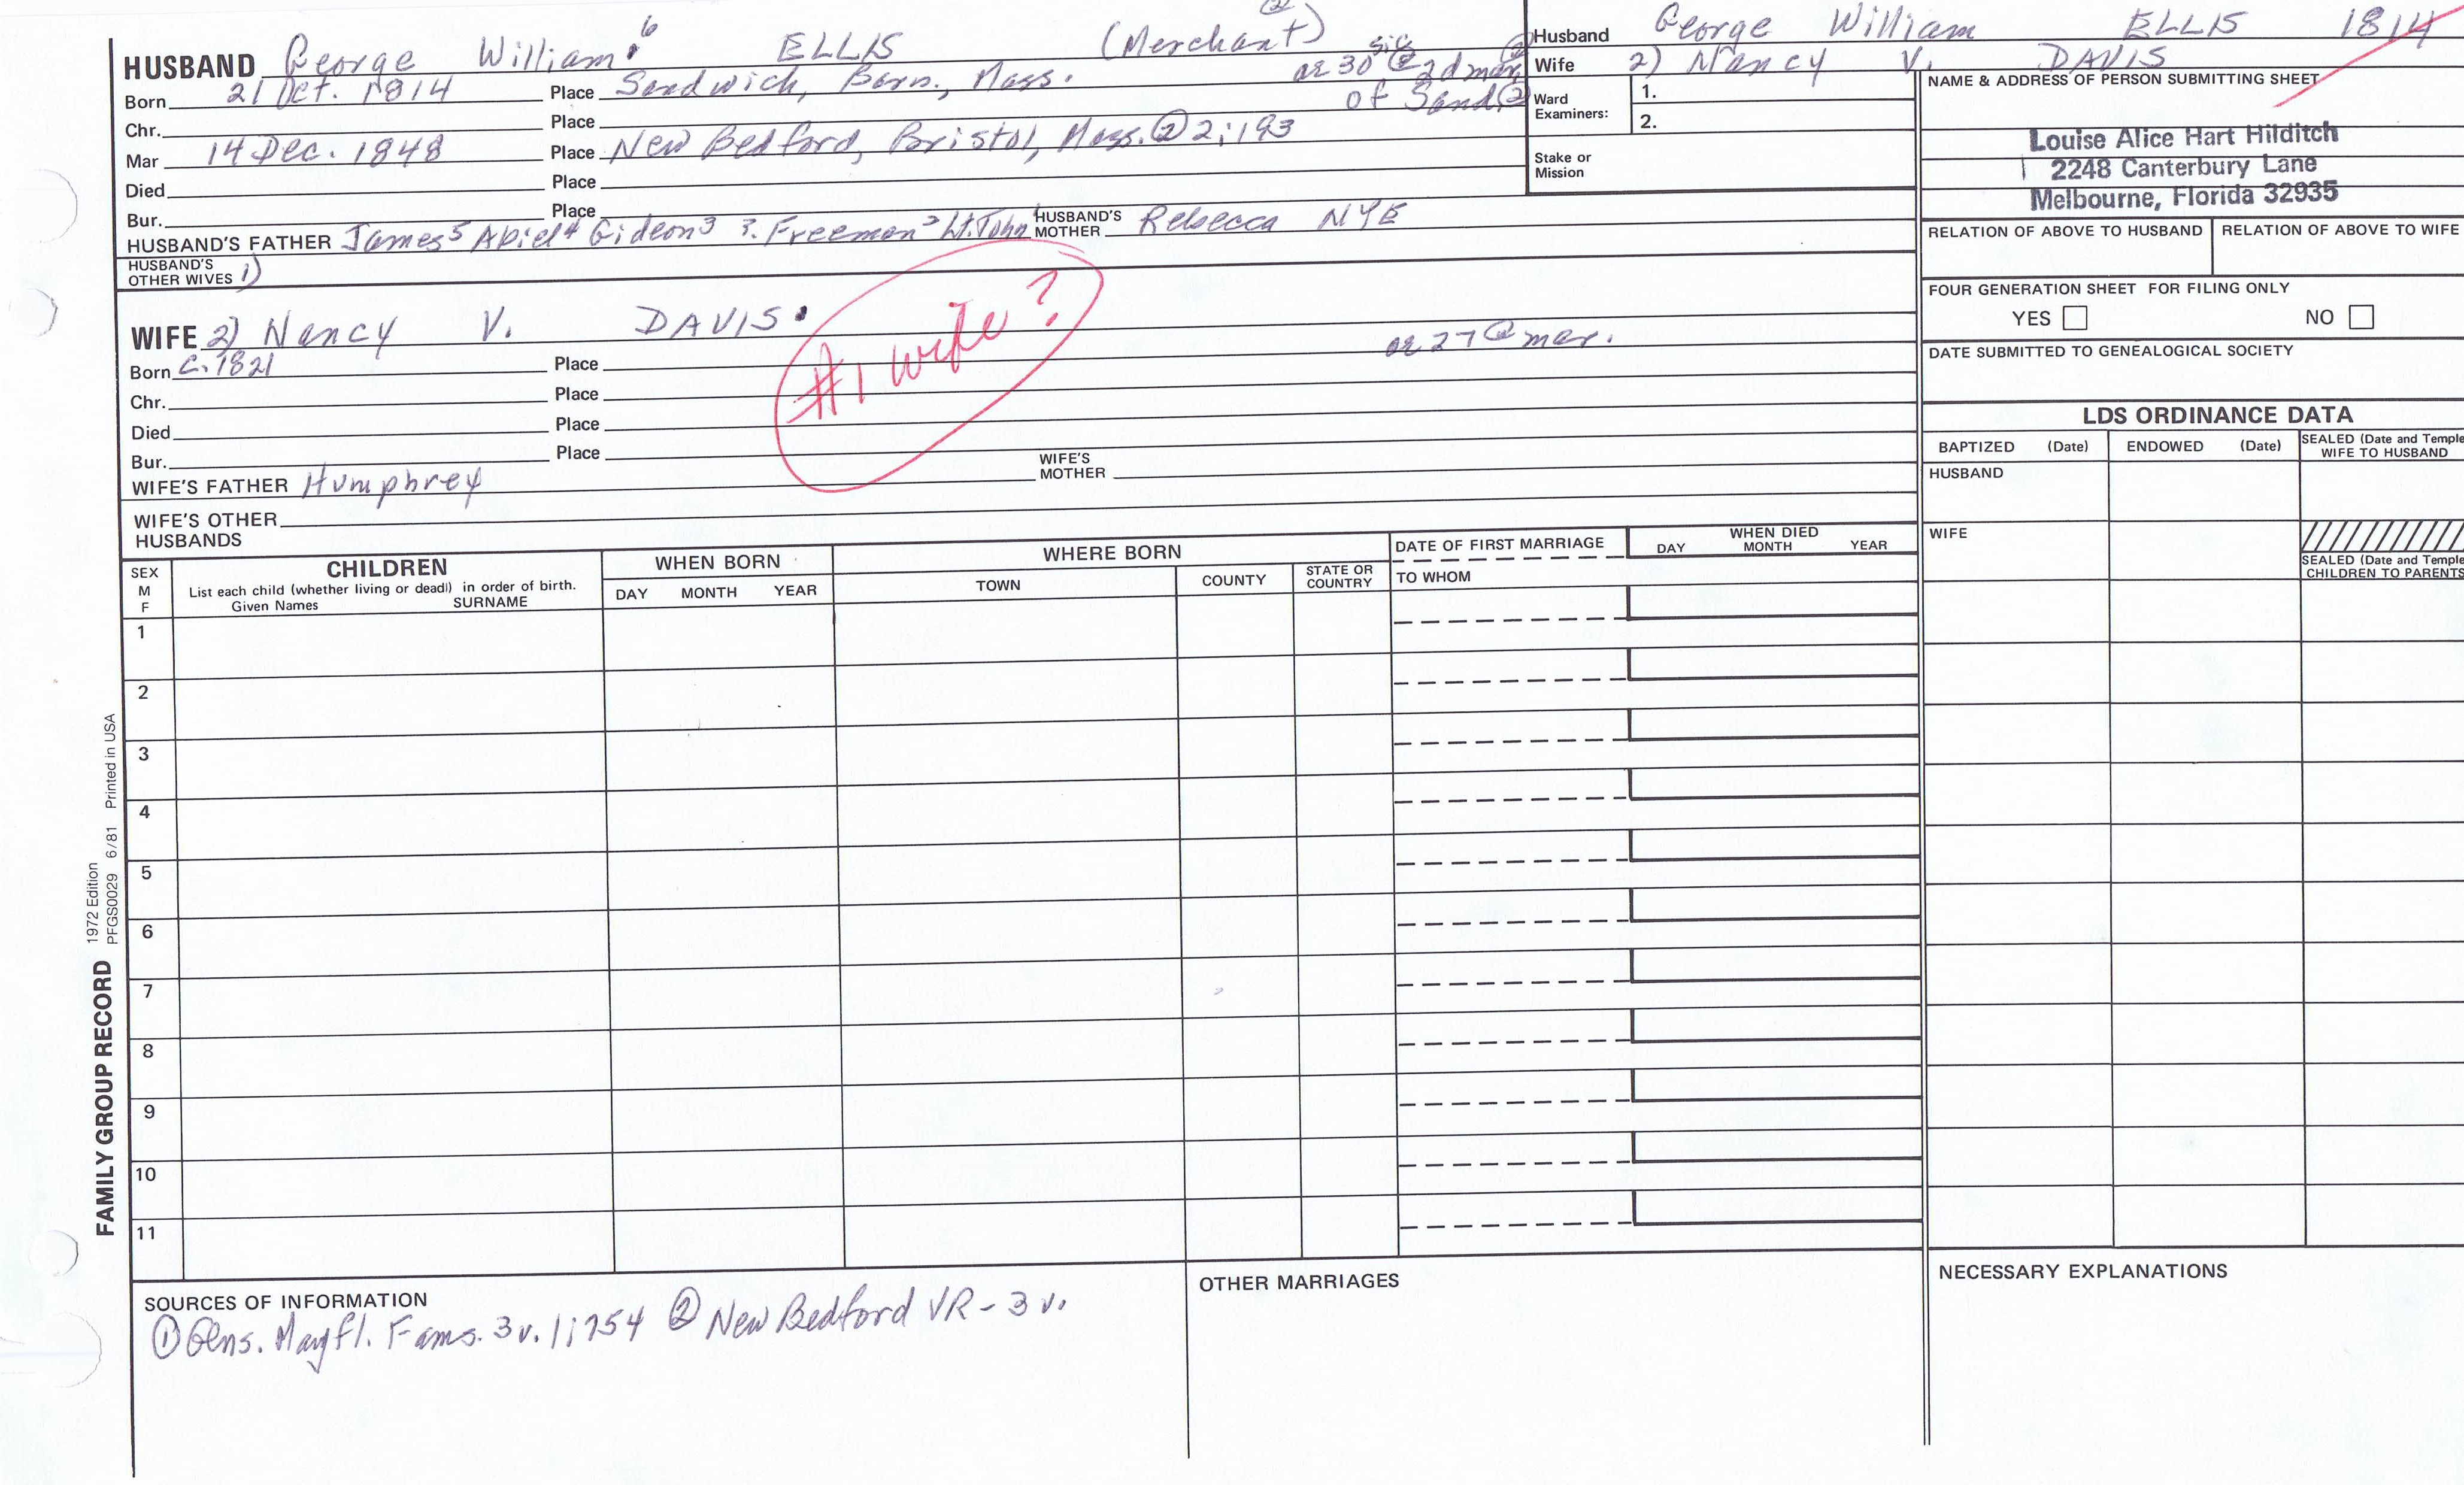 ②
HUSBAND George William⁶ ELLIS (Merchant) ae 30 sic @ 2d mar. ②
Born 21 Oct. 1814 Place Sandwich, Barn., Mass. of Sand. ②
Chr. Place
Mar 14 Dec. 1848 Place New Bedford, Bristol, Mass. ② 2:193
Died Place
Bur. Place
HUSBAND'S FATHER James⁵ Abiel⁴ Gideon³ ?. Freeman² Lt. John¹ HUSBAND'S MOTHER Rebecca NYE
HUSBAND'S OTHER WIVES 1)
WIFE 2) Nancy V. DAVIS.
#1 wife?
Born c. 1821 Place ae 27 @ mar.
Chr. Place
Died Place
Bur. Place
WIFE'S FATHER Humphrey WIFE'S MOTHER
WIFE'S OTHER HUSBANDS
Husband George William ELLIS 1814
Wife 2) Nancy V. DAVIS
Ward Examiners: 1.
2.
Stake or Mission
NAME & ADDRESS OF PERSON SUBMITTING SHEET
Louise Alice Hart Hilditch
2248 Canterbury Lane
Melbourne, Florida 32935
RELATION OF ABOVE TO HUSBAND RELATION OF ABOVE TO WIFE
FOUR GENERATION SHEET FOR FILING ONLY
YES NO
DATE SUBMITTED TO GENEALOGICAL SOCIETY
LDS ORDINANCE DATA
BAPTIZED (Date) ENDOWED (Date) SEALED (Date and Temple) WIFE TO HUSBAND
HUSBAND
WIFE
SEALED (Date and Temple) CHILDREN TO PARENTS
SEX M F
CHILDREN
List each child (whether living or dead) in order of birth.
Given Names SURNAME
WHEN BORN
DAY MONTH YEAR
WHERE BORN
TOWN COUNTY STATE OR COUNTRY
DATE OF FIRST MARRIAGE
TO WHOM
WHEN DIED
DAY MONTH YEAR
1
2
3
4
5
6
7
8
9
10
11
FAMILY GROUP RECORD
1972 Edition
PFGS0029 6/81 Printed in USA
SOURCES OF INFORMATION
① Gens. Mayfl. Fams. 3 v. 1:754 ② New Bedford VR - 3 v.
OTHER MARRIAGES
NECESSARY EXPLANATIONS